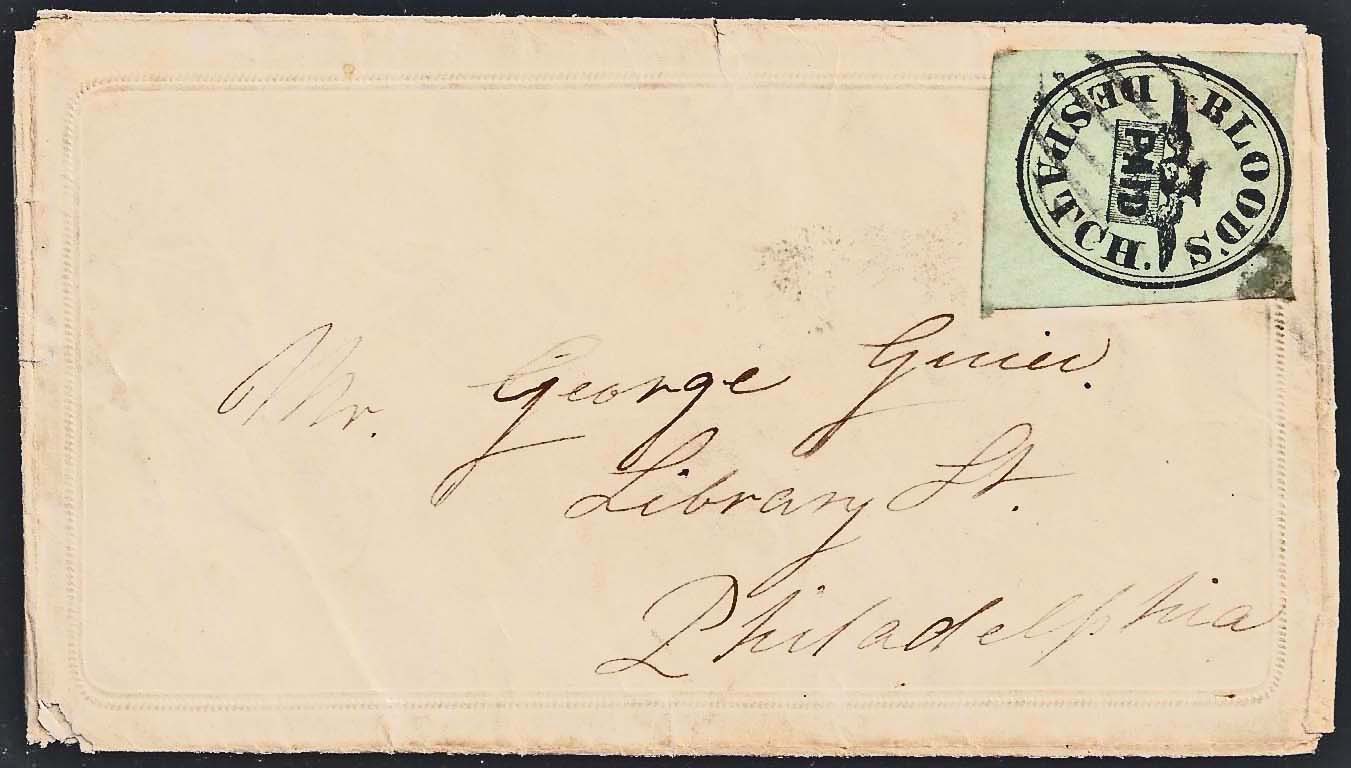 BLOOD'S.
PAID
DESPATCH.
Mr. George Guier.
Library St.
Philadelphia